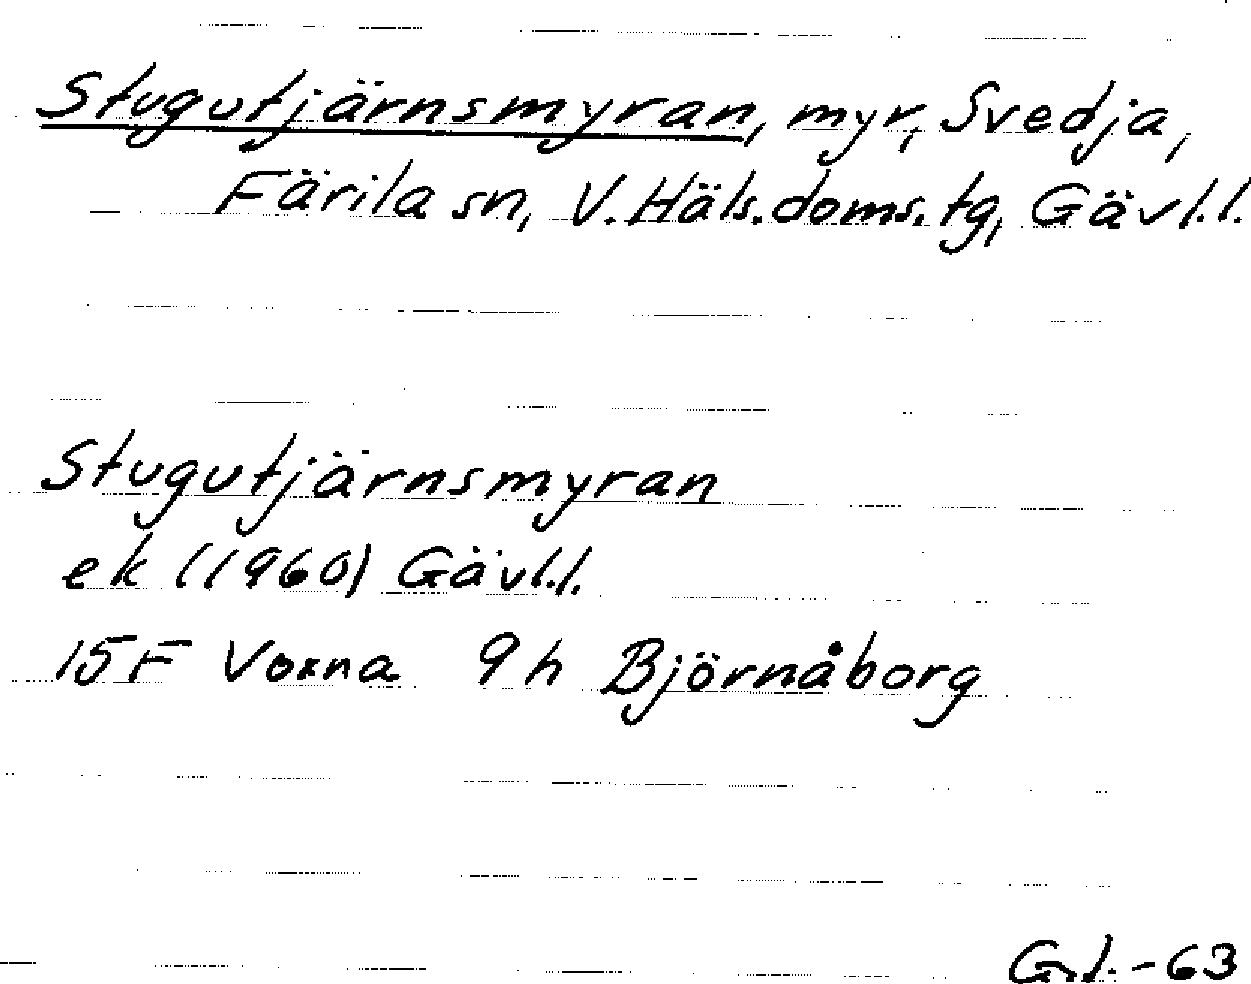 Stugutjärnsmyran, myr, Svedja,
Färila sn, V. Häls. doms. tg, Gävl.l.
Stugutjärnsmyran
ek (1960) Gävl.l.
15F Voxna 9h Björnåborg
-63